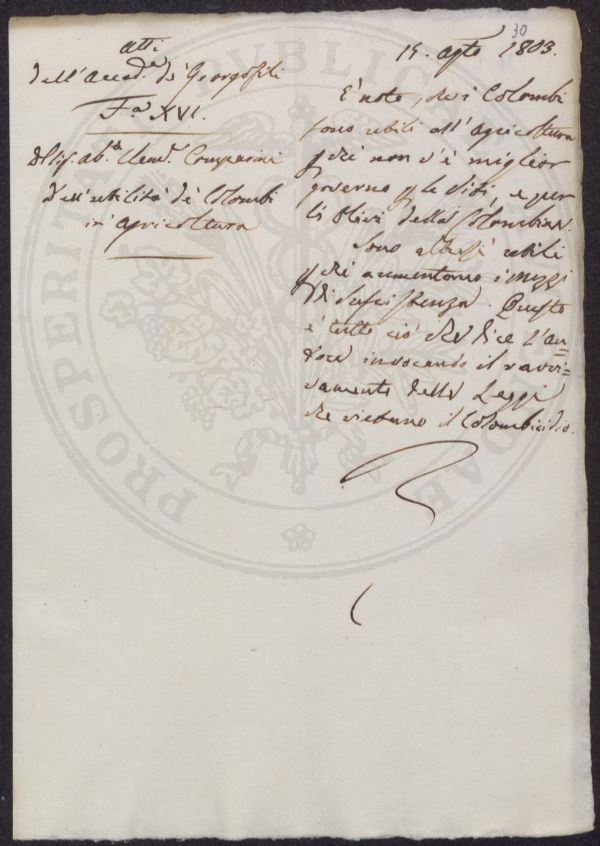 30
Atti
dell'Accad.a de' Georgofili
F.a XVI.
Del Sig. ab.e Clem.e Comparini
Dell'utilità de' Colombi
in agricoltura
15. agto 1803.
È noto, che i Colombi
sono utili all'agricoltura
che non v'è miglior
governo p le Viti, e per
li Olivi della Colombina.
Sono altresì utili
p che aumentano i mezzi
di sussistenza. Questo
è tutto ciò che dice l'au=
tore invocando il ravvi=
vamento delle Leggi
che vietano il Colombicidio.
PROSPERITATI PUBLICAE